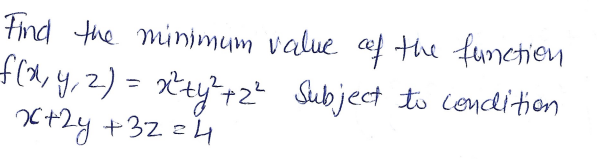 Find the minimum value of the function
f(x, y, z) = x²+y²+z² Subject to condition
x+2y+3z=4